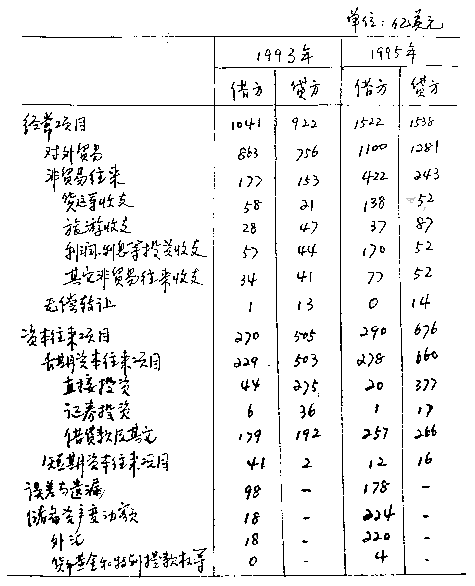 单位:亿美元
1993年 1995年
借方 贷方 借方 贷方
经常项目 1041 922 1522 1538
对外贸易 863 756 1100 1281
非贸易往来 177 153 422 243
货运等收支 58 21 138 52
旅游收支 28 47 37 87
利润、利息等投资收支 57 44 170 52
其它非贸易往来收支 34 41 77 52
无偿转让 1 13 0 14
资本往来项目 270 505 290 676
长期资本往来项目 229 503 278 660
直接投资 44 275 20 377
证券投资 6 36 1 17
借贷款及其它 179 192 257 266
短期资本往来项目 41 2 12 16
误差与遗漏 98 - 178 -
储备资产变动额 18 - 224 -
外汇 18 - 220 -
货币黄金和特别提款权等 0 - 4 -